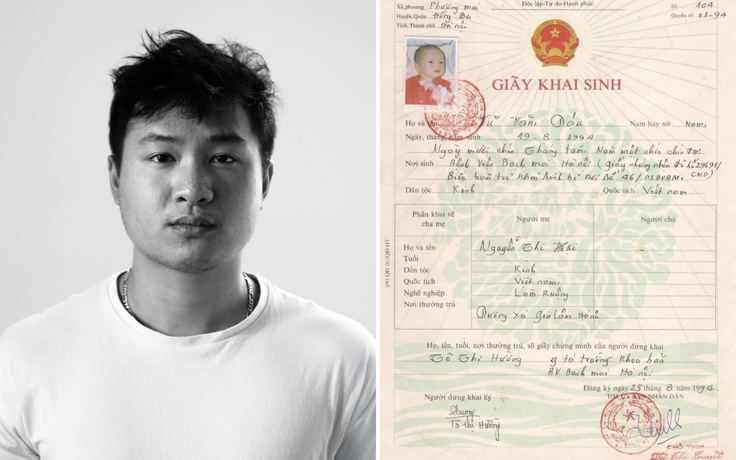 Độc lập-Tự do-Hạnh phúc
Xã, phường Phương mai
Huyện, Quận Đống Đa
Tỉnh, Thành phố Hà nội
Số 104
Quyển số 01-94
GIẤY KHAI SINH
Họ và tên Vũ Văn Dấu Nam hay nữ Nam,
Ngày, tháng, năm sinh 19-8-1994
Ngày mười chín Tháng tám, Năm một chín chín tư
Nơi sinh Bệnh Viện Bạch mai Hà nội (giấy chứng nhận
Biên bản trẻ sơ sinh bị
Dân tộc Kinh Quốc tịch Việt nam
Phần khai về cha mẹ
Người mẹ
Người cha
Họ và tên Nguyễn Thị
Tuổi
Dân tộc Kinh
Quốc tịch Việt nam
Nghề nghiệp Làm Ruộng
Nơi thường trú
Dương Xá Gia Lâm Hà nội
Họ, tên, tuổi, nơi thường trú, số giấy chứng minh của người đứng khai
Tô Thị Hường y tá trưởng Khoa
BV Bạch mai Hà nội
Đăng ký ngày 25 tháng 8 năm 1994
Người đứng khai ký
TM. ỦY BAN NHÂN DÂN
Tô Thị Hường
CHỦ TỊCH